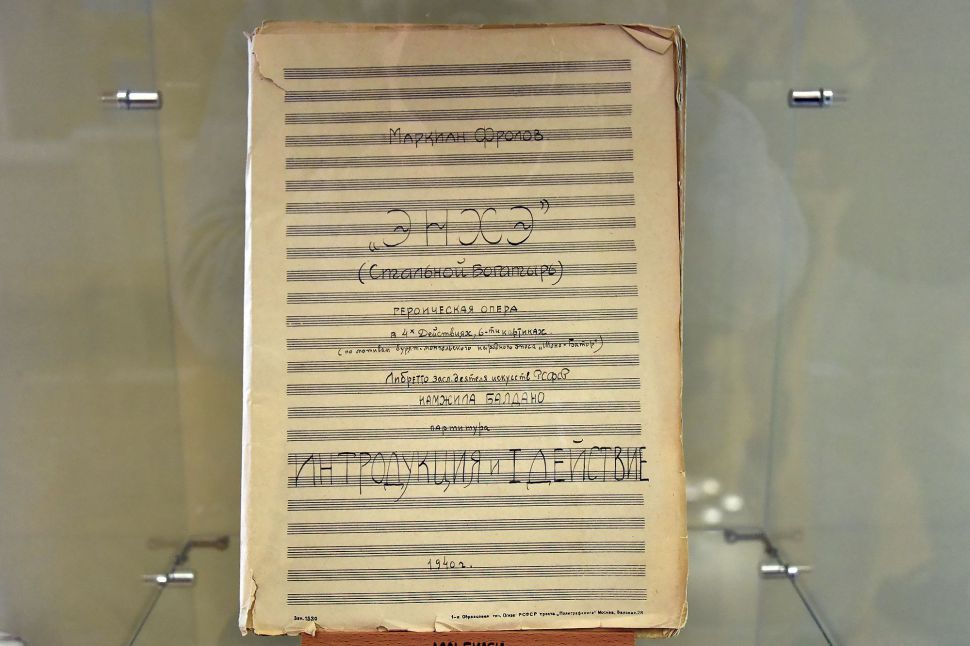 Маркиан Фролов
„ЭНХЭ”
(Стальной Богатырь)
ГЕРОИЧЕСКАЯ ОПЕРА
в 4х Действиях, 6-ти картинах.
(по мотивам бурят-монгольского народного эпоса
Либретто засл. деятеля искусств РСФСР
НАМЖИЛА БАЛДАНО
партитура
ИНТРОДУКЦИЯ и I ДЕЙСТВИЕ
1940 г.
Зак. 1530
1-я Образцовая тип. Огиза РСФСР треста „Полиграфкнига” Москва, Валовая, 28